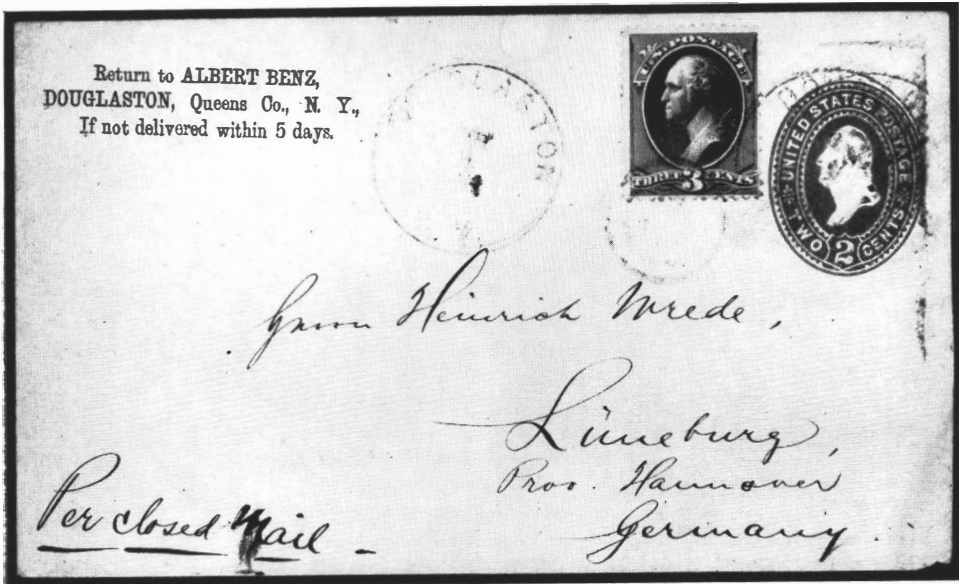 Return to ALBERT BENZ,
DOUGLASTON, Queens Co., N. Y.,
If not delivered within 5 days.
LASTON
U.S. POSTAGE
THREE 3 CENTS
UNITED STATES POSTAGE
TWO 2 CENTS
Herrn Heinrich Wrede,
Lüneburg,
Prov. Hannover
Germany.
Per closed Mail